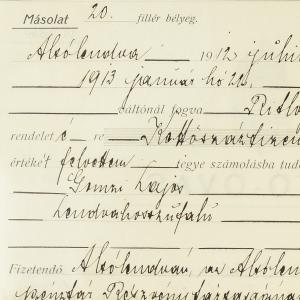 Másolat 20. fillér bélyeg.
Alsólendva 1912 juli
1913 január hó 22.
váltónál fogva
rendelet é re Kettőszáztizen
értékét felvettem tegye számolásba tud
Gönczi Lajos
Lendvahosszúfalu
Fizetendő Alsólendván, az Alsólen
Részvénytársaságná